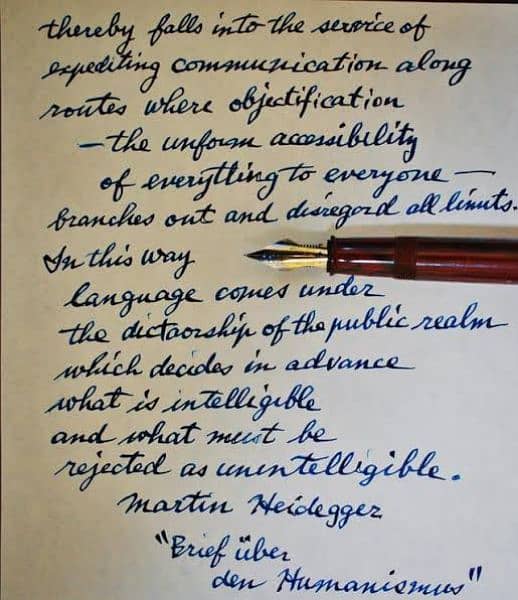 thereby falls into the service of
expediting communication along
routes where objectification
—the unform accessibility
of everything to everyone—
branches out and disregard all limits.
In this way
language comes under
the dictaorship of the public realm
which decides in advance
what is intelligible
and what must be
rejected as unintelligible.
Martin Heidegger
"Brief über
den Humanismus"